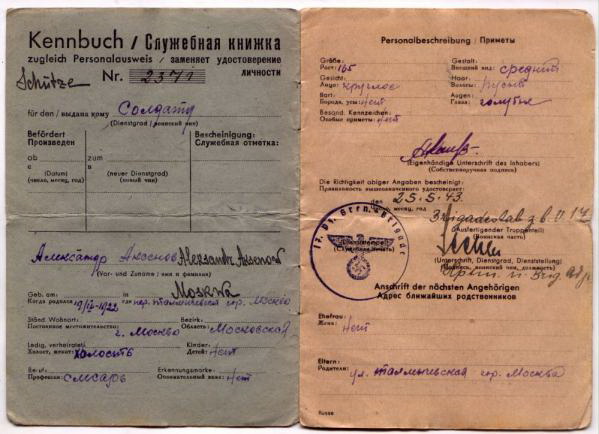 Kennbuch / Служебная книжка
zugleich Personalausweis / заменяет удостоверение
личности
Nr. 2371
Schütze
für den / выдана кому Солдату
(Dienstgrad / воинский чин)
Befördert
Произведен
Bescheinigung:
Служебная отметка:
ab
с
zum
в
(Datum)
(число, месяц, год)
(neuer Dienstgrad)
(новый чин)
Александр Аксенов Aleksandr Aksenow
(Vor- und Zuname / имя и фамилия)
Geb. am: in Москва
Когда родился 1922 где гор. Москва
Ständ. Wohnort:
Постоянное местожительство: г. Москва
Bezirk:
Область: Московская
Ledig, verheiratet:
Холост, женат: холостъ
Kinder:
Детей: Нет
Beruf:
Профессия: слесарь
Erkennungsmarke:
Опознавательный знак: Нет
Personalbeschreibung / Приметы
Größe:
Рост: 165
Gestalt:
Внешний вид: средний
Gesicht:
Лицо: круглое
Haar:
Волосы: русый
Bart:
Борода, усы: нет
Augen:
Глаза: голубые
Besond. Kennzeichen:
Особые приметы: нет
(Eigenhändige Unterschrift des Inhabers)
(Собственноручная подпись)
Die Richtigkeit obiger Angaben bescheinigt:
Правильность вышеозначенного удостоверяет:
den 25.5.43.
месяц, год
Brigadestab z.b.V. 17
(Ausfertigender Truppenteil)
(Воинская часть)
(Unterschrift, Dienstgrad, Dienststellung)
(Подпись, воинский чин, должность)
Anschrift der nächsten Angehörigen
Адрес ближайших родственников
Ehefrau:
Жена: Нет
Eltern:
Родители: гор. Москва